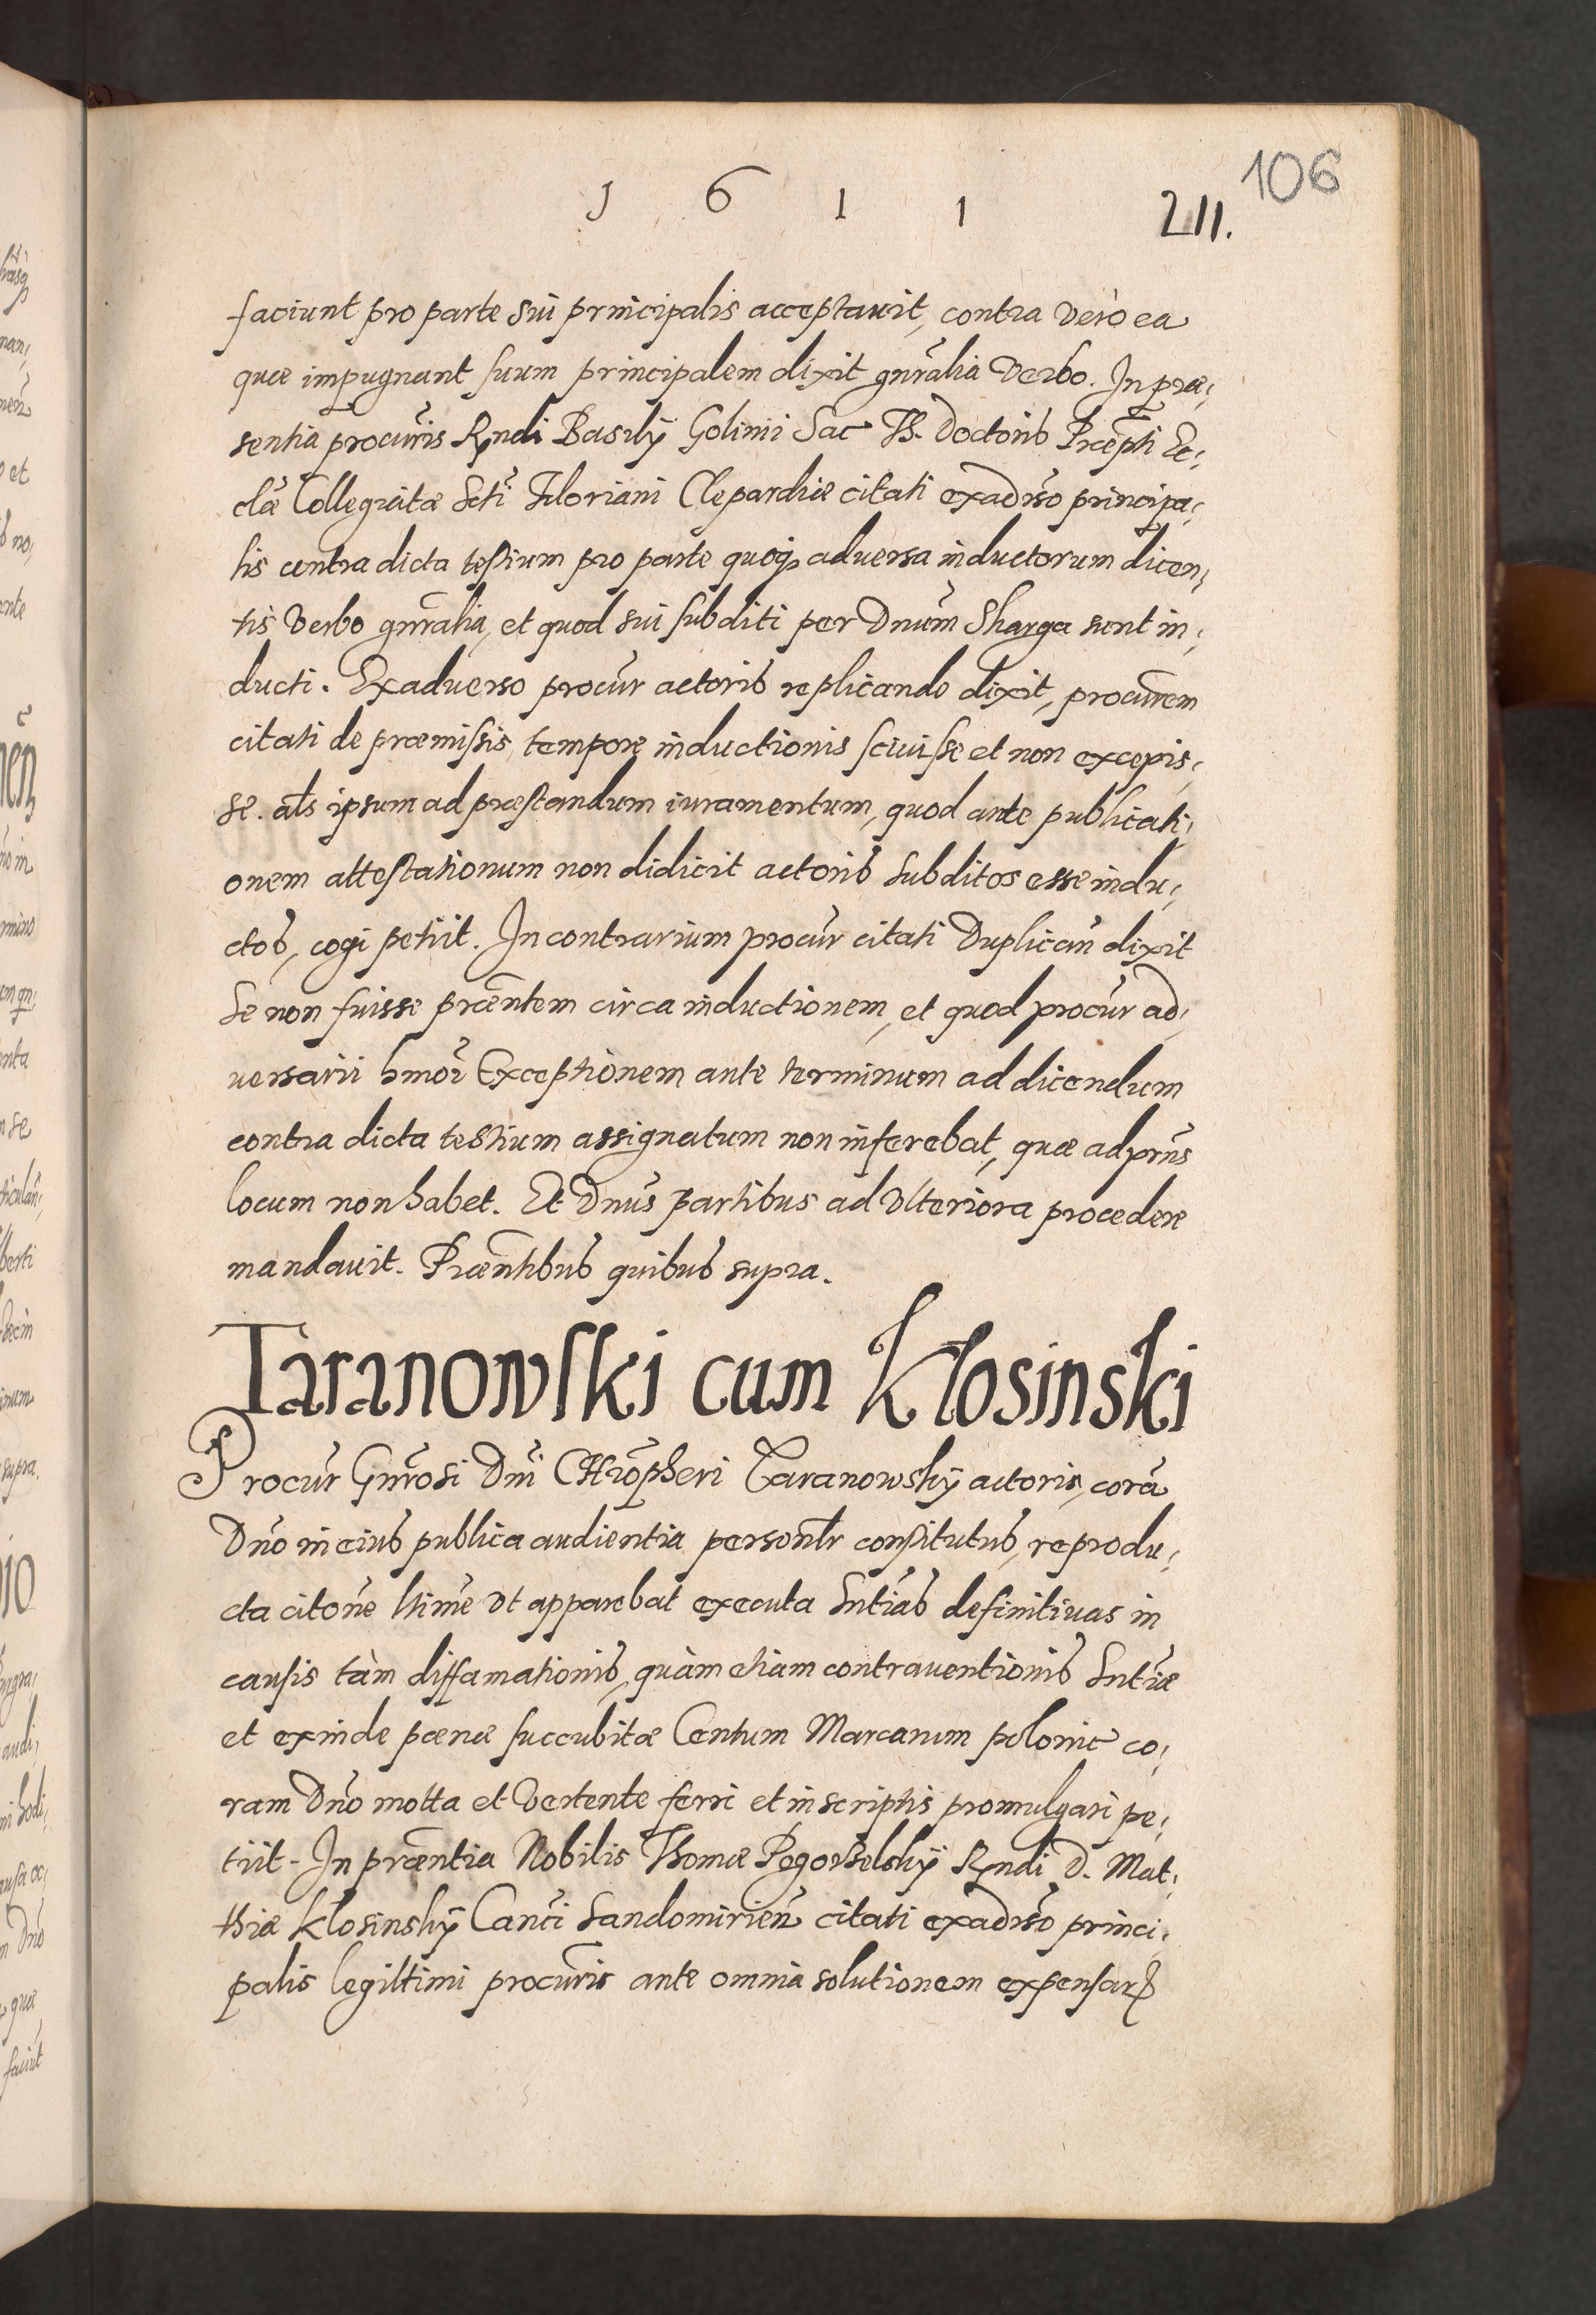 106
1 6 1 1 211.
faciunt pro parte sui principalis acceptauit, contra verò ea
quæ impugnant suum principalem dixit gnr̃alia verbo. In præ,
sentia procur̃is Rndi Basilÿ Golinii Sac Th. Doctoris Præp̃ti Ec,
clæ Collegiatæ Scti Floriani Clepardiæ citati exadũso principa,
lis contra dicta testium pro parte quoq aduersa inductorum dicen,
tis verbo gnr̃alia, et quod sui subditi per Dnũm Skarga sunt in,
ducti. Exaduerso procur̃ actoris replicando dixit, procur̃em
citati de præmissis, tempore inductionis sciuisse et non excepis,
se. als̃ ipsum ad præstandum iuramentum, quod ante publicati,
onem attestationum non didicit actoris subditos esse indu,
ctos, cogi petiit. In contrarium procur̃ citati Duplicañ dixit
se non fuisse præñtem circa inductionem, et quod procur̃ ad,
uersarii hmõi Exceptionem ante terminum ad dicendum
contra dicta testium assignatum non inferebat, quæ ad prñs
locum non habet. Et Dnũs partibus ad vlteriora procedere
mandauit. Præñtibus quibus supra.
Taranowski cum Klosinski
Procur̃ Gnr̃osi Dnĩ Chrõpheri Taranowskÿ actoris, corã
Dnõ in eius publica audientia personlr̃ constitutus, reprodu,
cta citonẽ ltimẽ vt apparebat executa Sntĩas definitiuas in
causis tàm diffamationis, quàm etiam contrauentionis Sntĩæ
et exinde pœnæ succubitæ Centum Marcarum polonic co,
ram Dnõ motta et vertente ferri et in scriptis promulgari pe,
tiit. In præñtia Nobilis Thomæ Pogorzelskÿ Rndi D. Mat,
thiæ Klosinskÿ Canci Sandomirieñ citati exadũso princi,
palis legittimi procur̃is ante omnia solutionem expensarꝝ